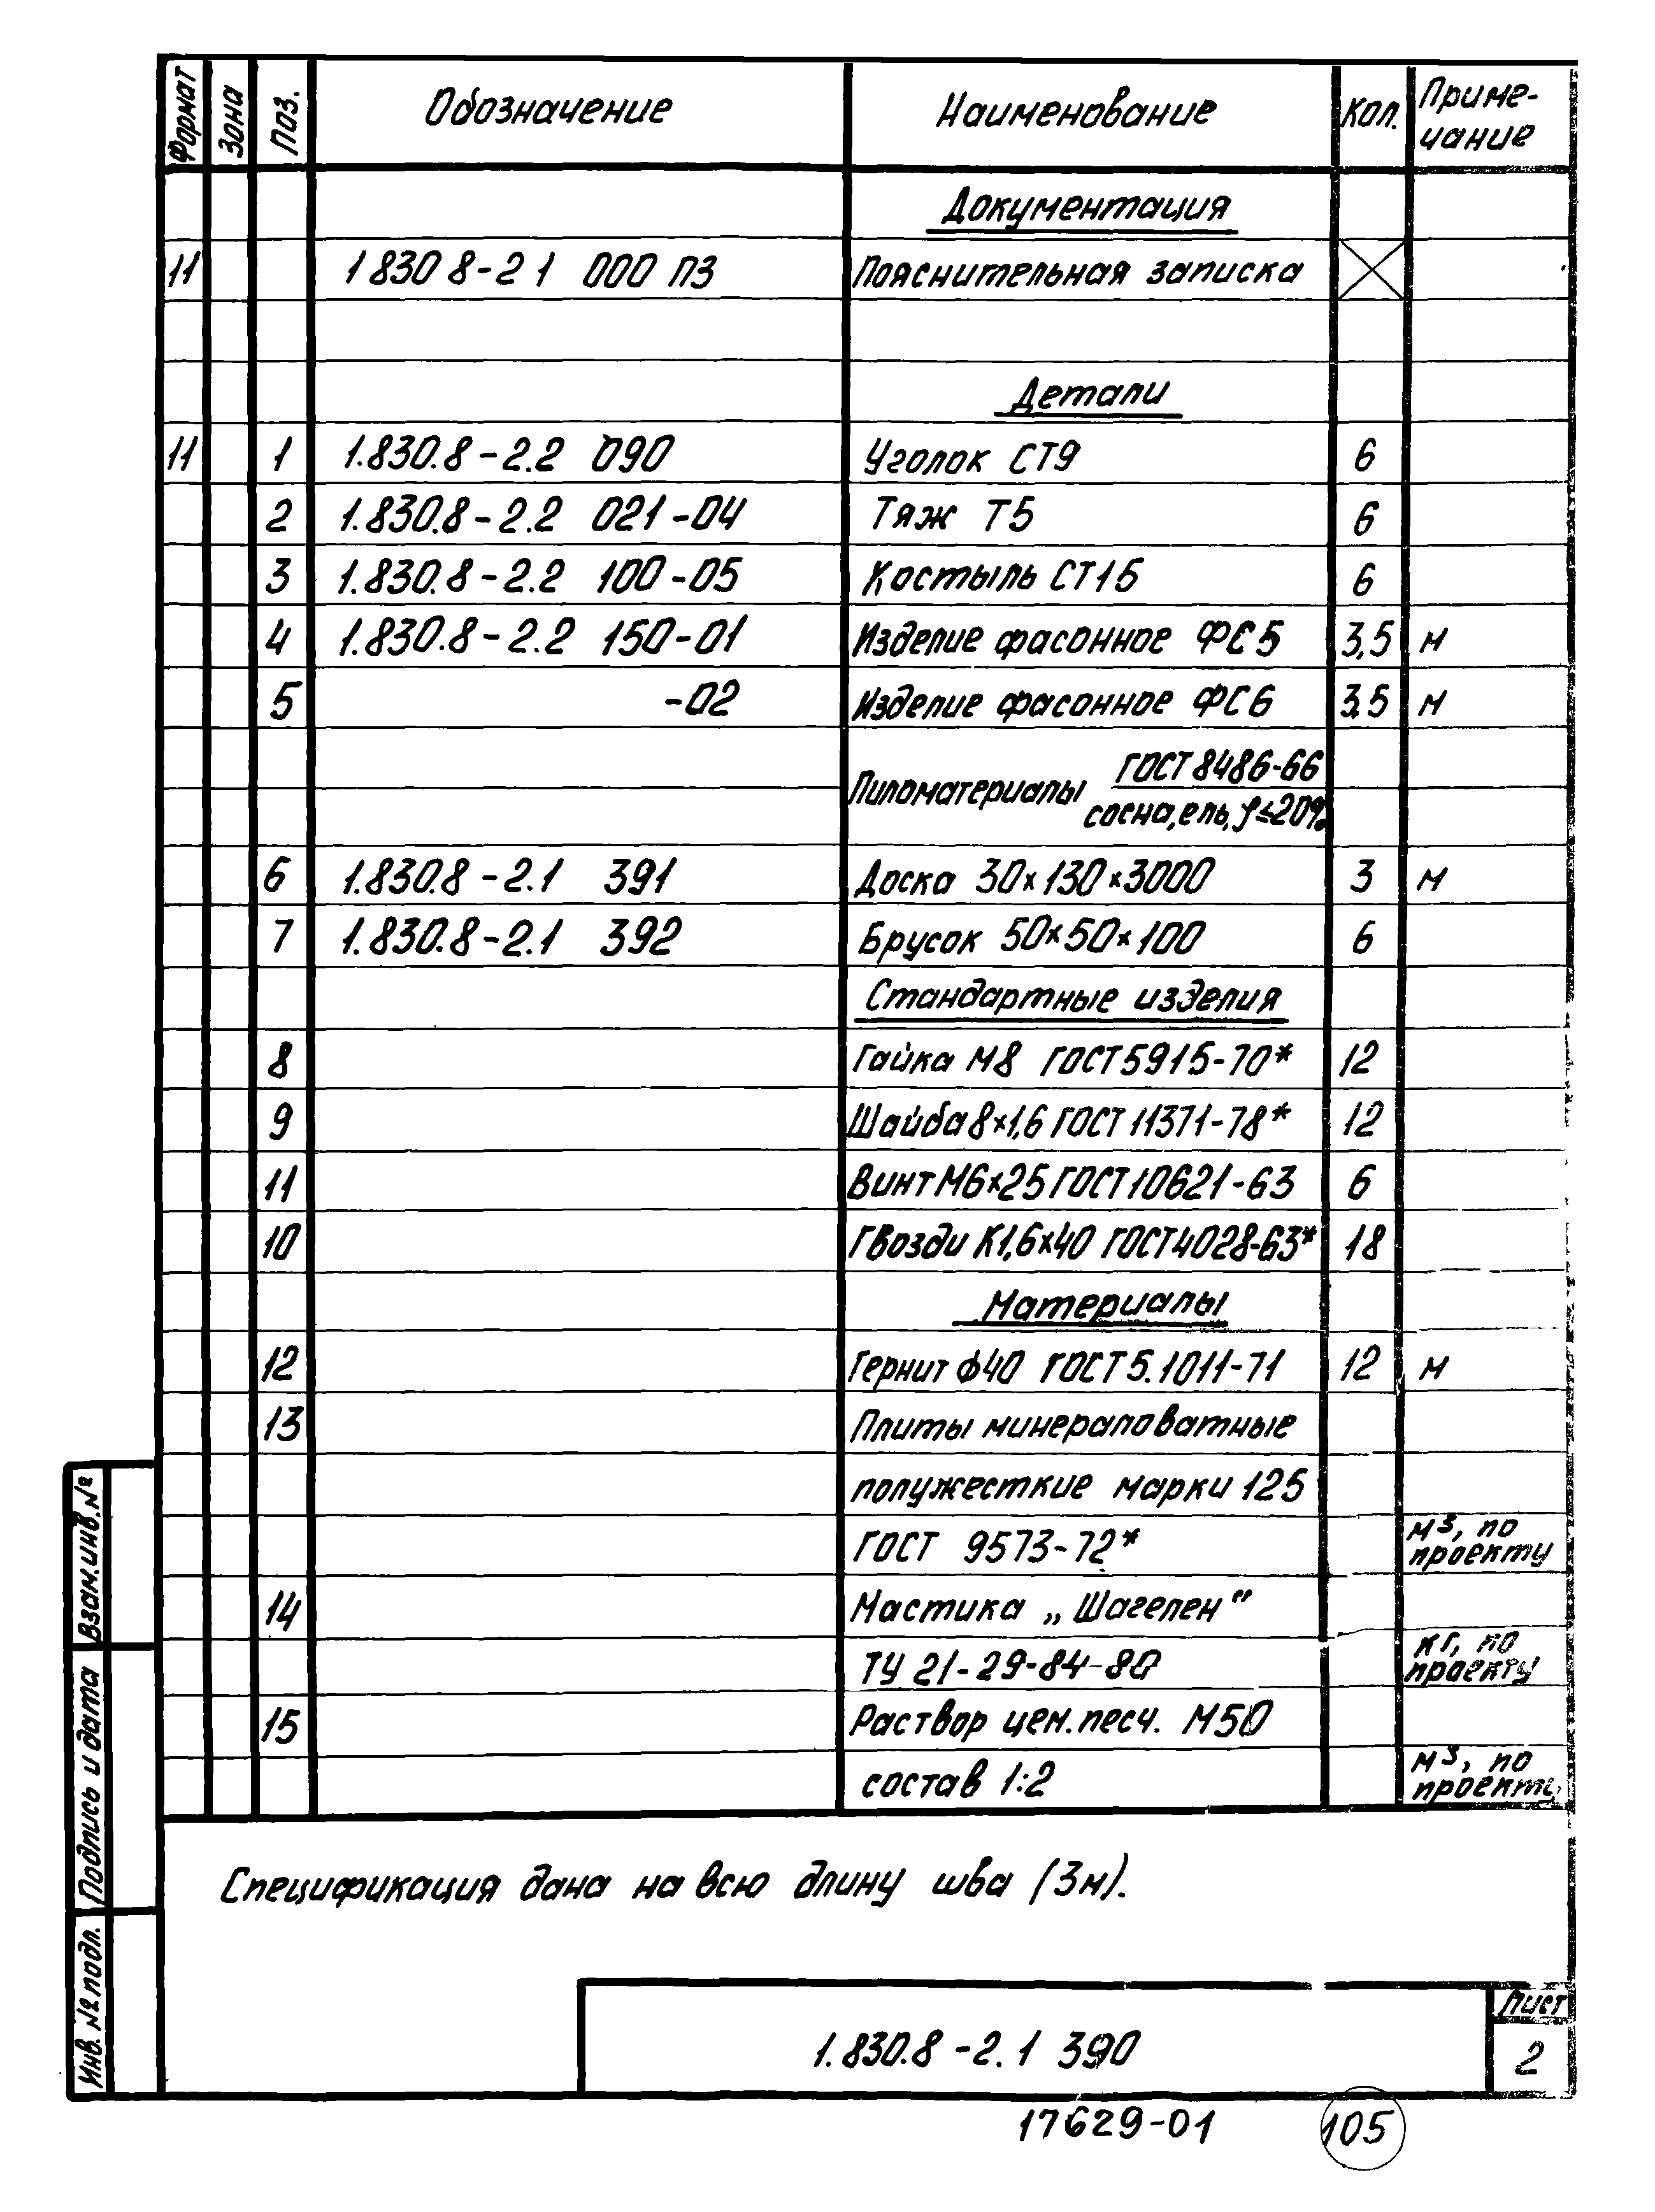 Формат Зона Поз. Обозначение Наименование Кол. Приме-
чание
Документация
11 1 830 8-2 1 000 ПЗ Пояснительная записка
Детали
11 1 1.830.8-2.2 090 Уголок СТ9 6
2 1.830.8-2.2 021-04 Тяж Т5 6
3 1.830.8-2.2 100-05 Костыль СТ15 6
4 1.830.8-2.2 150-01 Изделие фасонное ФС5 3,5 м
5 -02 Изделие фасонное ФС6 3,5 м
Пиломатериалы ГОСТ 8486-66
сосна, ель, φ≤20%
6 1.830.8-2.1 391 Доска 30×130×3000 3 м
7 1.830.8-2.1 392 Брусок 50×50×100 6
Стандартные изделия
8 Гайка М8 ГОСТ 5915-70* 12
9 Шайба 8×1,6 ГОСТ 11371-78* 12
11 Винт М6×25 ГОСТ 10621-63 6
10 Гвозди К1,6×40 ГОСТ 4028-63* 18
Материалы
12 Гернит ф40 ГОСТ 5.1011-71 12 м
13 Плиты минераловатные
полужесткие марки 125
ГОСТ 9573-72* м³, по
проекту
14 Мастика „Шагелен“
ТУ 21-29-84-80 кг, по
проекту
15 Раствор цем.песч. М50
состав 1:2 м³, по
проекту
Взам.инв.№
Подпись и дата
Инв. №подл.
Спецификация дана на всю длину шва (3м).
1.830.8-2.1 390
Лист
2
17629-01 105